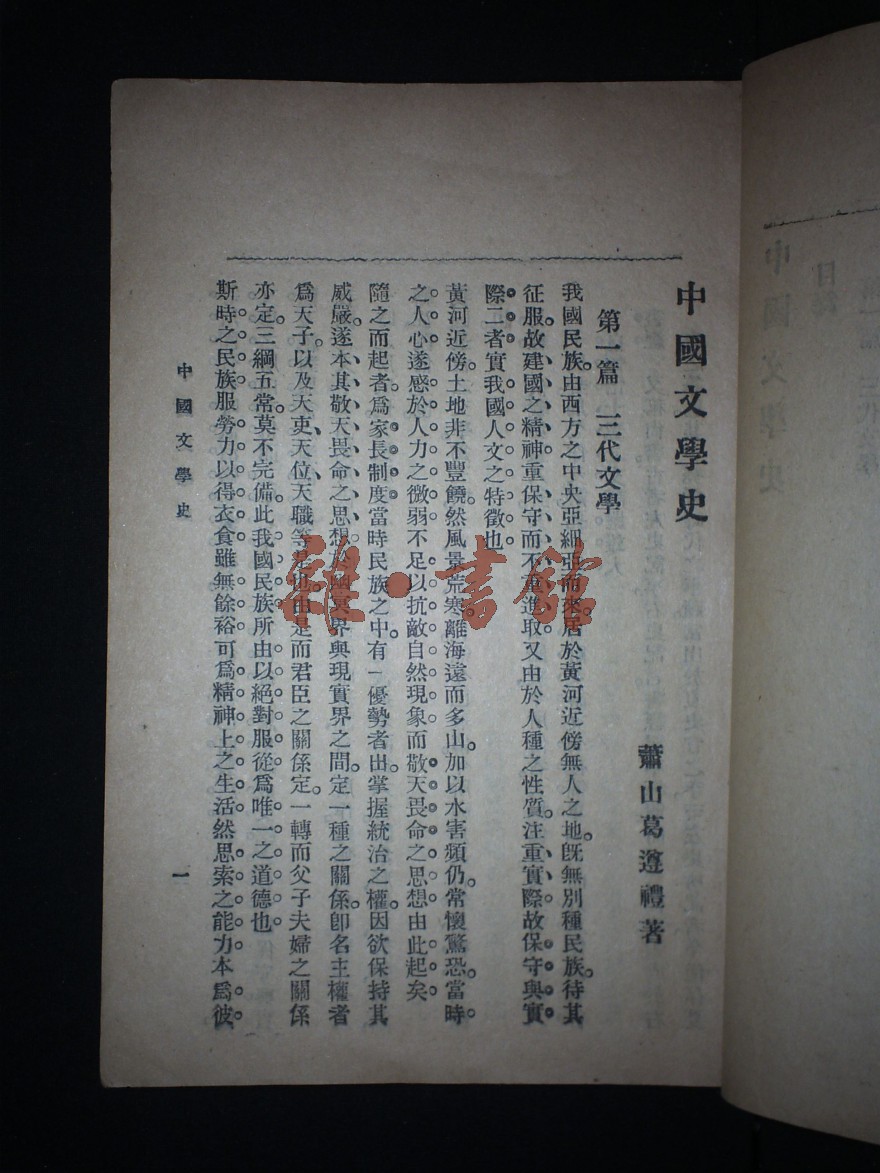 中國文學史
蕭山葛遵禮著
第一篇 三代文學
我國民族。由西方之中央亞細亞而來。居於黃河近傍無人之地。旣無別種民族。待其
征服。故建國之精神重保守而不重進取。又由於人種之性質。注重實際。故保守與實
際二者實我國人文之特徵也。
黃河近傍。土地非不豐饒。然風景荒寒。離海遠而多山。加以水害頻仍。常懷驚恐。當時
之人心遂感於人力之微弱。不足以抗敵自然現象。而敬天畏命之思想由此起矣。
隨之而起者。爲家長制度。當時民族之中。有一優勢者出。掌握統治之權。因欲保持其
威嚴。遂本其敬天畏命之思想。於幽冥界與現實界之間。定一種之關係。卽名主權者
爲天子。以及天吏、天位、天職等是也。由是而君臣之關係定。一轉而父子夫婦之關係
亦定。三綱五常。莫不完備。此我國民族所由以絕對服從爲唯一之道德也。
斯時之民族服勞力以得衣食雖無餘裕可爲精神上之生活然思索之能力本爲彼
中國文學史
一
雜·書館